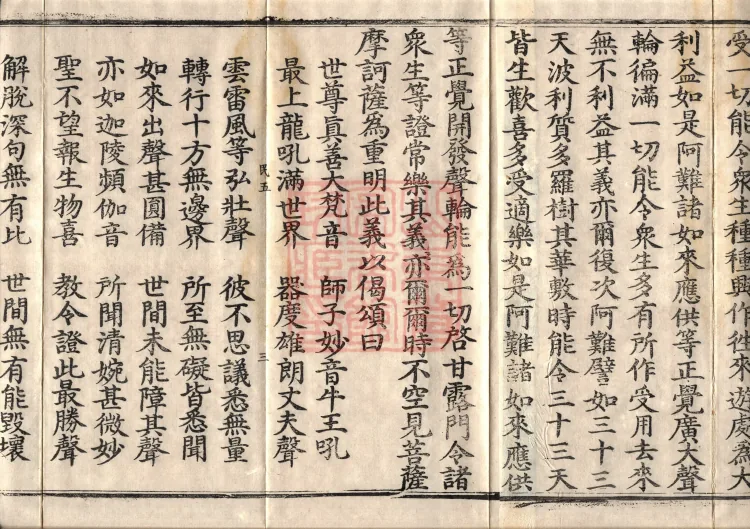 受一切能令衆生種種興作往來遊處為大
利益如是阿難諸如來應供等正覺廣大聲
輪徧滿一切能令衆生多有所作受用去來
無不利益其義亦爾復次阿難譬如三十三
天波利質多羅樹其華敷時能令三十三天
皆生歡喜多受適樂如是阿難諸如來應供
等正覺開發聲輪能為一切啓甘露門令諸
衆生等證常樂其義亦爾爾時不空見菩薩
摩訶薩為重明此義以偈頌曰
世尊眞善大梵音　師子妙音牛王吼
最上龍吼滿世界　器度雄朗丈夫聲
民五　三
雲雷風等弘壯聲　彼不思議悉無量
轉行十方無邊界　所至無礙皆悉聞
如來出聲甚圓備　世間未能障其聲
亦如迦陵頻伽音　所聞清婉甚微妙
聖不望報生物喜　教令證此最勝聲
解脫深句無有比　世間無有能毀壞